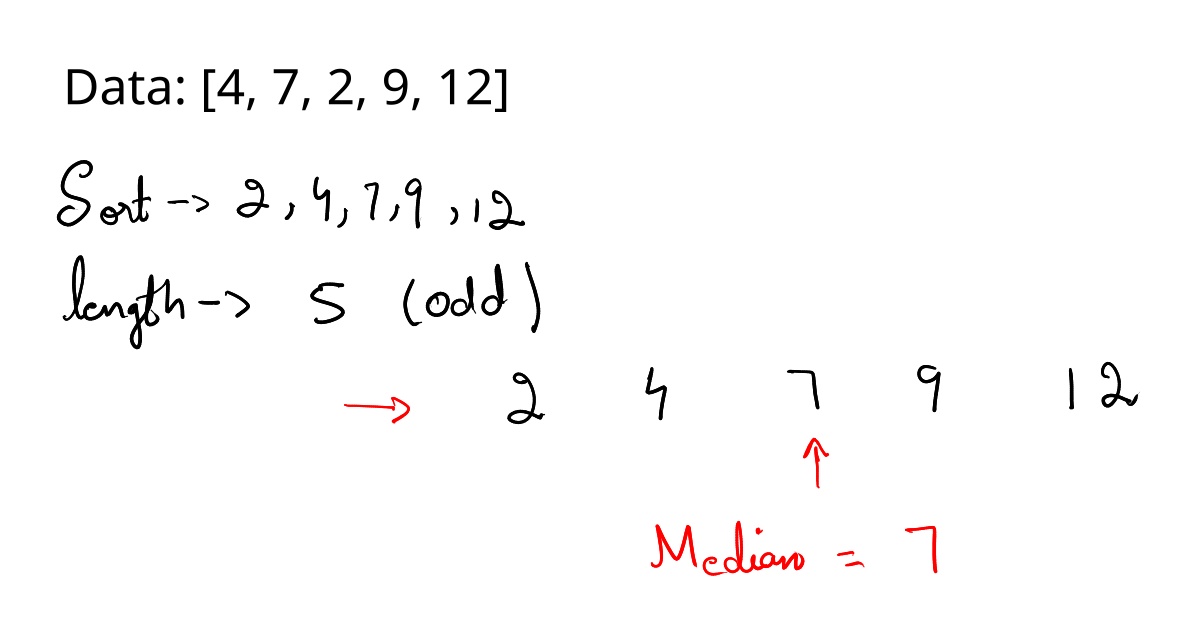 Data: [4, 7, 2, 9, 12]
Sort -> 2, 4, 7, 9, 12
length -> 5 (odd)
→ 2 4 7 9 12
↑
Median = 7